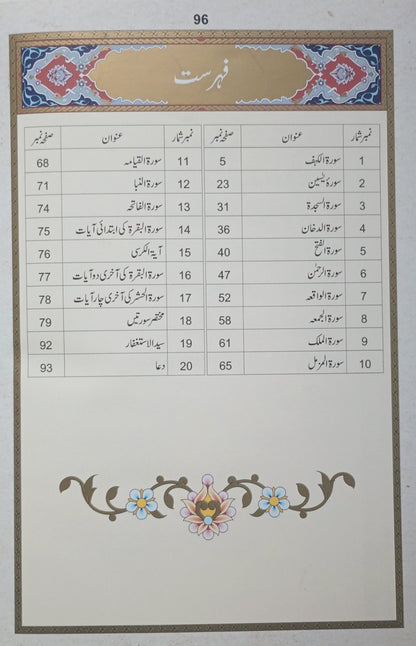 96
فہرست
نمبر شمار عنوان صفحہ نمبر نمبر شمار عنوان صفحہ نمبر
1 سورۃ الکہف 5 11 سورۃ القیامہ 68
2 سورۃ یٰسین 23 12 سورۃ النبا 71
3 سورۃ السجدۃ 31 13 سورۃ الفاتحہ 74
4 سورۃ الدخان 36 14 سورۃ البقرۃ کی ابتدائی آیات 75
5 سورۃ الفتح 40 15 آیۃ الکرسی 76
6 سورۃ الرحمٰن 47 16 سورۃ البقرۃ کی آخری دو آیات 77
7 سورۃ الواقعہ 52 17 سورۃ الحشر کی آخری چار آیات 78
8 سورۃ الجمعہ 58 18 مختصر سورتیں 79
9 سورۃ الملک 61 19 سید الاستغفار 92
10 سورۃ المزمل 65 20 دعا 93